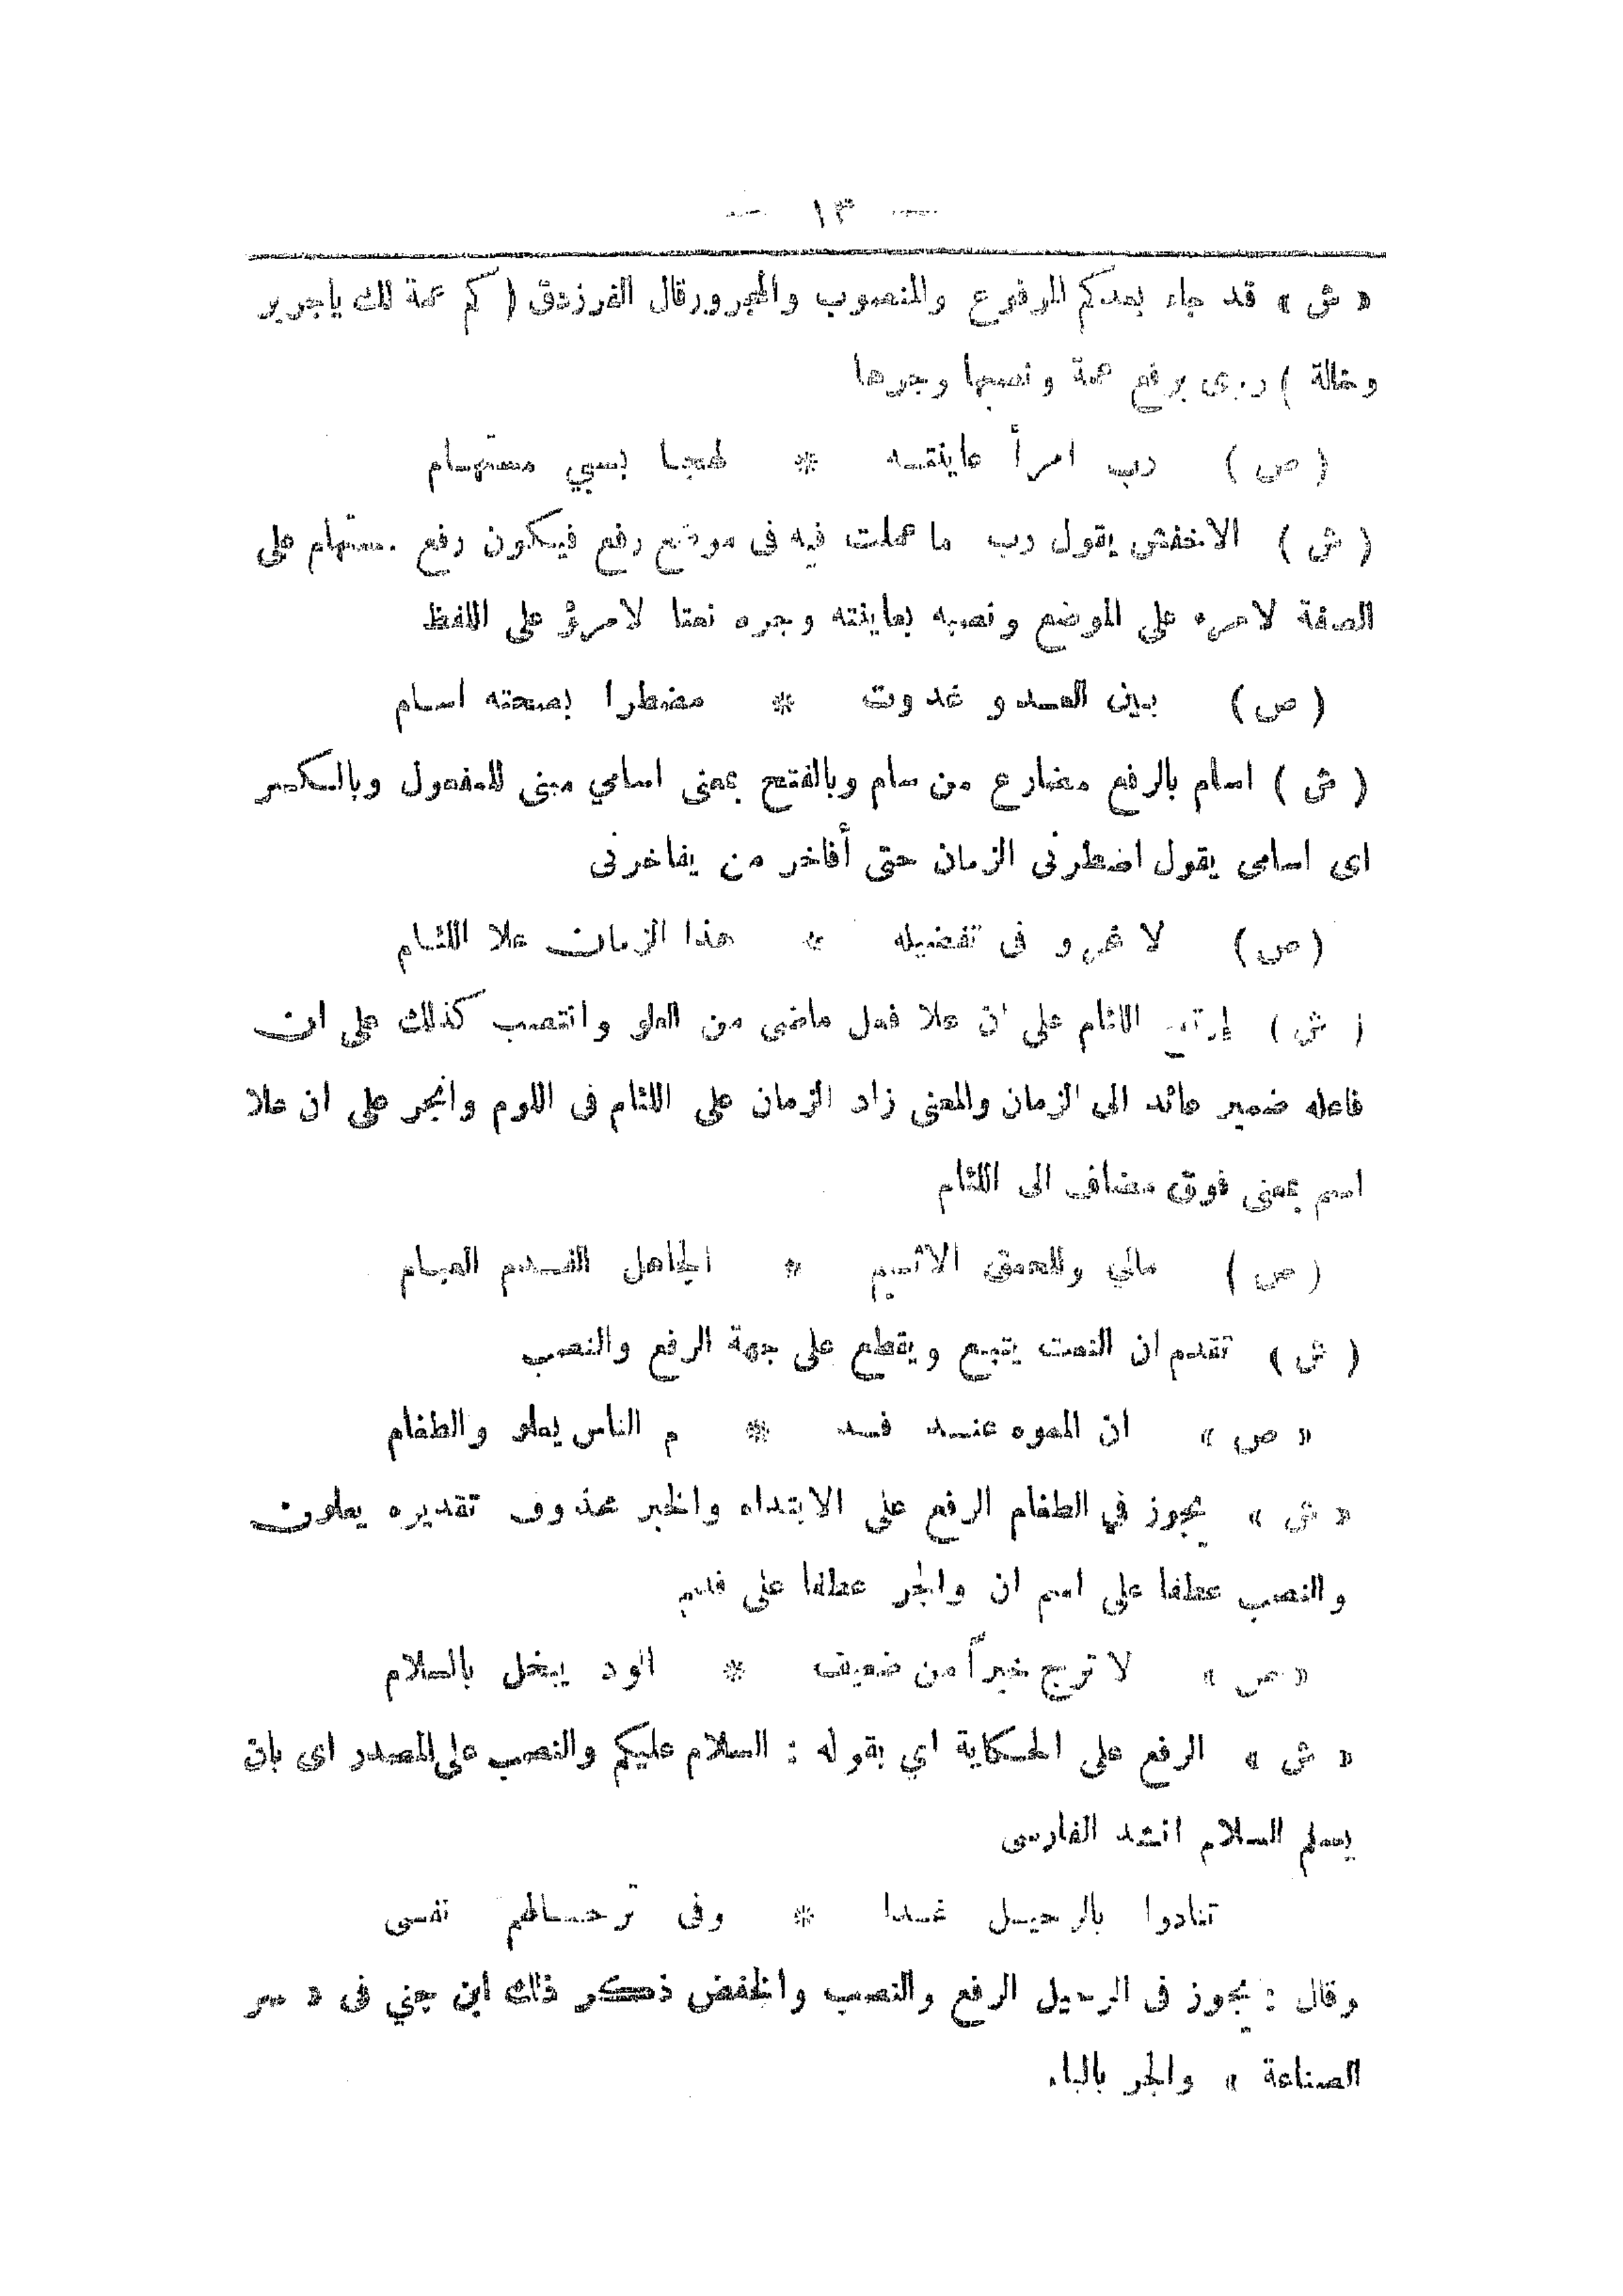 — ١٣ —
« ش » قد جاء بعدكم المرفوع والمنصوب والمجرور قال الفرزدق ( كم عمة لك ياجرير
وخالة ) روى برفع عمة ونصبها وجرها
( ص ) رب امرأ عاينته * لهجا بسبي مستهام
( ش ) الاخفش يقول رب ما عملت فيه فى موضع رفع فيكون رفع مستهام على
الصفة لامره على الموضع ونصبه بعاينته وجره نعتا لامرؤ على اللفظ
( ص ) بين العدو غدوت * مضطرا بصحته اسام
( ش ) اسام بالرفع مضارع من سام وبالفتح بمعنى اسامي مبنى للمفعول وبالكسر
اى اسامى يقول اضطرنى الزمان حتى أفاخر من يفاخرنى
( ص ) لا غرو فى تفضيله * هذا الزمان علا اللئام
( ش ) إرتفع اللئام على ان علا فعل ماضى من العلو وانتصب كذلك على ان
فاعله ضمير عائد الى الزمان والمعنى زاد الزمان على اللئام فى اللوم وانجر على ان علا
اسم بمعنى فوق مضاف الى اللئام
( ص ) مالي وللحمق الاثيم * الجاهل الفدم العبام
( ش ) تقدم ان النعت يتبع ويقطع على جهة الرفع والنصب
« ص » ان المموه عند فد * م الناس يعلو والطغام
« ش » يجوز في الطغام الرفع على الابتداء والخبر محذوف تقديره يعلون
والنصب عطفا على اسم ان والجر عطفا على فدم
« ص » لا ترج خيراً من ضعيف * الود يبخل بالسلام
« ش » الرفع على الحكاية اي بقوله : السلام عليكم والنصب على المصدر اى بان
يسلم السلام انشد الفارسى
تنادوا بالرحيل غدا * وفى ترحالهم نفسى
وقال : يجوز فى الرحيل الرفع والنصب والخفض ذكر ذلك ابن جني فى « سر
الصناعة » والجر بالباء